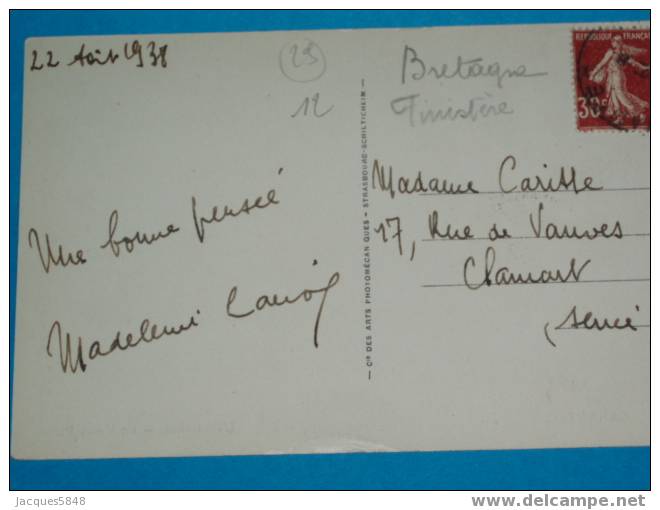 22 Août 1938
29
12
Bretagne
Finistère
REPUBLIQUE FRANÇAISE
30c
Une bonne pensée
Madeleine
Madame Carisse
17, Rue de Vanves
Clamart
(Seine
Cie DES ARTS PHOTOMÉCANIQUES - STRASBOURG-SCHILTIGHEIM
Jacques5848
delcampe.net